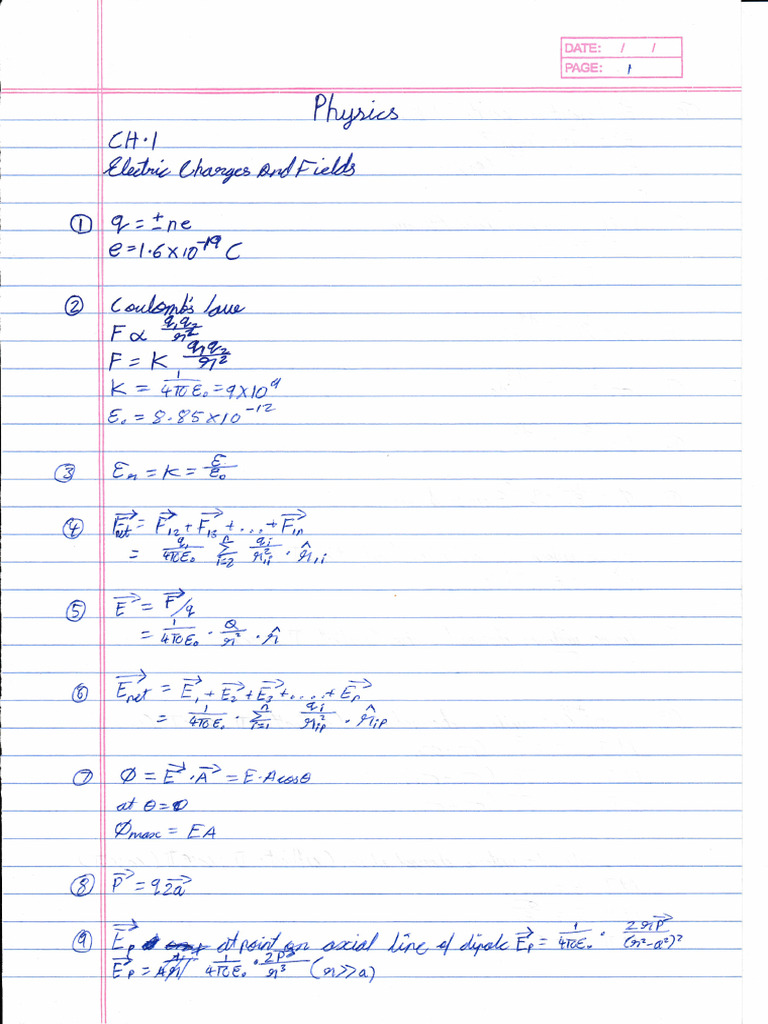 DATE: / /
PAGE: 1
Physics
CH.1
Electric Charges and Fields
① q = ± ne
e = 1.6 × 10⁻¹⁹ C
② Coulomb's law
F ∝ q₁q₂/r²
F = K q₁q₂/r²
K = 1/4πε₀ = 9×10⁹
ε₀ = 8.85×10⁻¹²
③ εᵣ = K = ε/ε₀
④ F⃗net = F⃗₁₂ + F⃗₁₃ + ... + F⃗₁ₙ
= q₁/4πε₀ Σⁿᵢ₌₂ qᵢ/r²₁ᵢ · r̂₁ᵢ
⑤ E⃗ = F⃗/q
= 1/4πε₀ · Q/r² · r̂
⑥ E⃗net = E⃗₁ + E⃗₂ + E⃗₃ + .... + E⃗ₙ
= 1/4πε₀ · Σⁿᵢ₌₁ qᵢ/r²ᵢₚ · r̂ᵢₚ
⑦ Ø = E⃗ · A⃗ = E·A cosθ
at θ = 0
Ømax = EA
⑧ P⃗ = q2a⃗
⑨ E⃗ₚ at point on axial line of dipole E⃗ₚ = 1/4πε₀ · 2rP⃗/(r²-a²)²
E⃗ₚ = 1/4πε₀ · 2P⃗/r³ (r>>a)